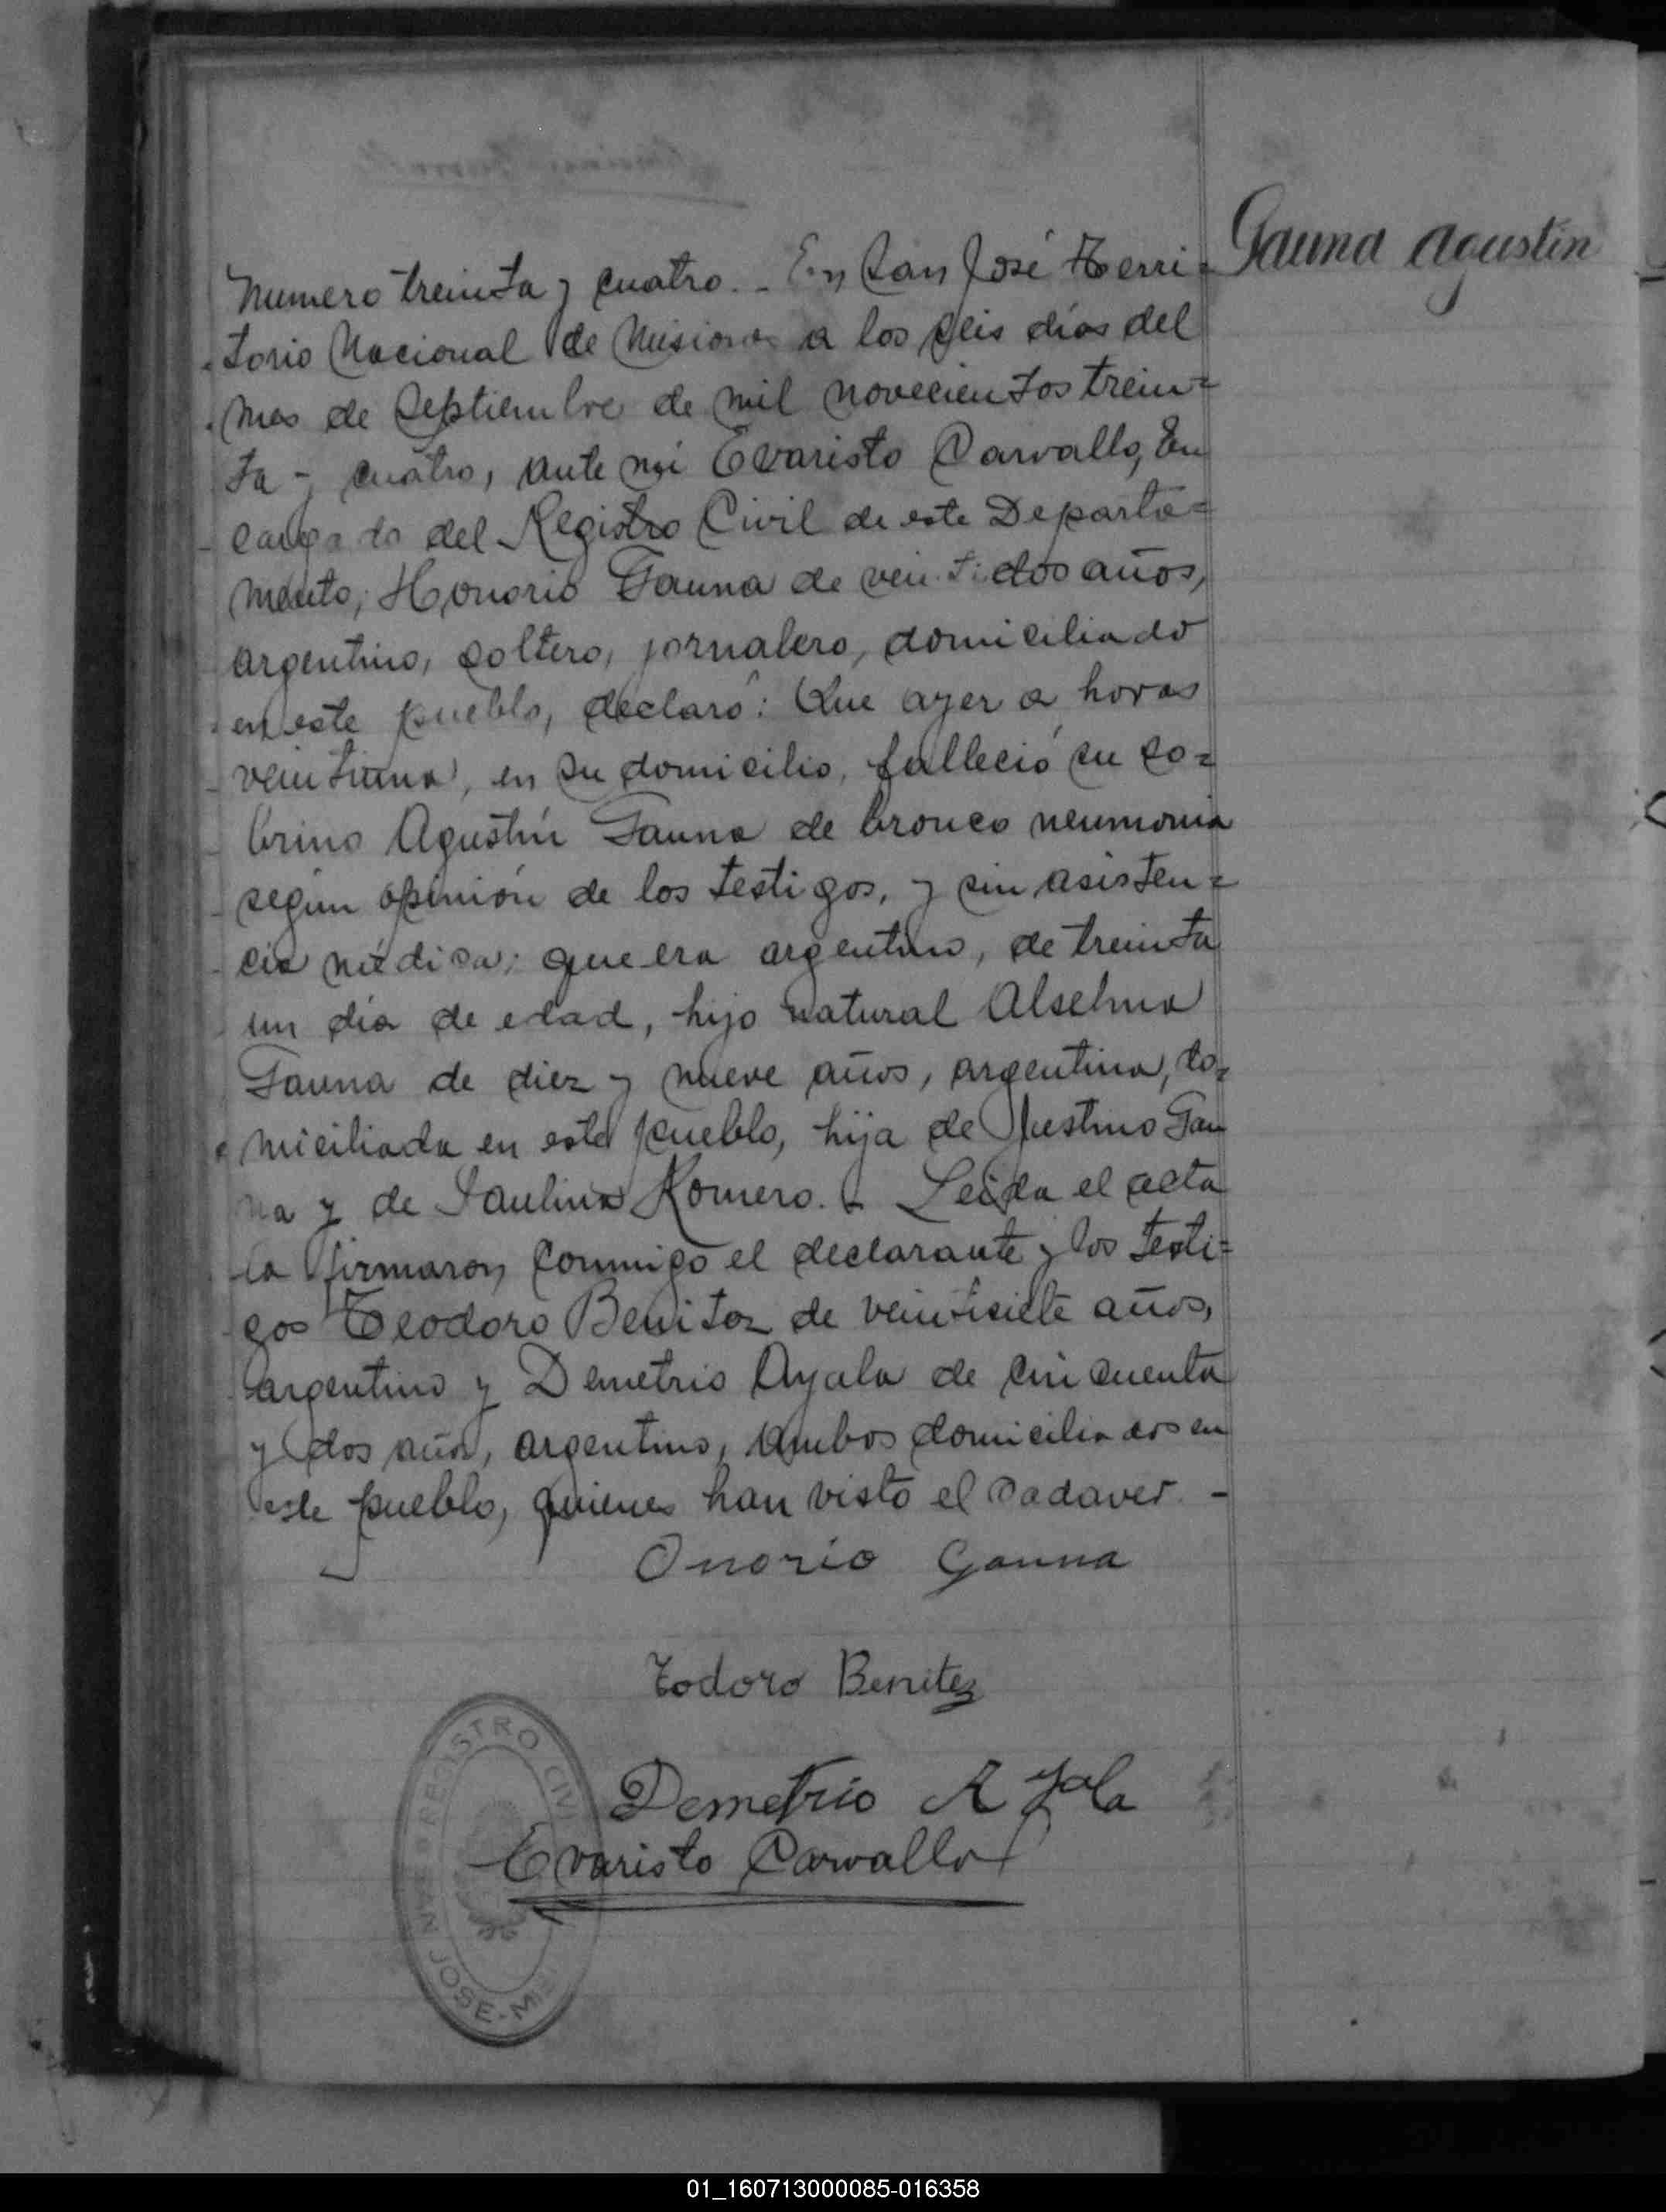 Gauna Agustín
Numero treinta y cuatro.- En San José Terri=
torio Nacional de Misiones a los seis días del
mes de Septiembre de mil novecientos trein=
ta y cuatro, ante mí Evaristo Carvallo, En
cargado del Registro Civil de este Departa=
mento, Honorio Gauna de veintidos años,
argentino, soltero, jornalero, domiciliado
en este pueblo, declaró: Que ayer a horas
veintiuna, en su domicilio, falleció su so=
brino Agustín Gauna de bronco neumonia
según opinión de los testigos, y sin asisten=
cia médica; que era argentino, de treinta
un día de edad, hijo natural Alselma
Gauna de diez y nueve años, argentina, do=
miciliada en este pueblo, hija de Justino Gau
na y de Paulina Romero. - Leida el acta
la firmaron conmigo el declarante y los testi=
gos Teodoro Benitez de veintisiete años,
argentino y Demetrio Ayala de cincuenta
y dos años, argentino, ambos domiciliados en
este pueblo, quienes han visto el cadaver. -
Onorio Gauna
Todoro Benitez
Demetrio Ayala
Evaristo Carvallo
REGISTRO CIVIL
SAN JOSE-MIS
01_160713000085-016358